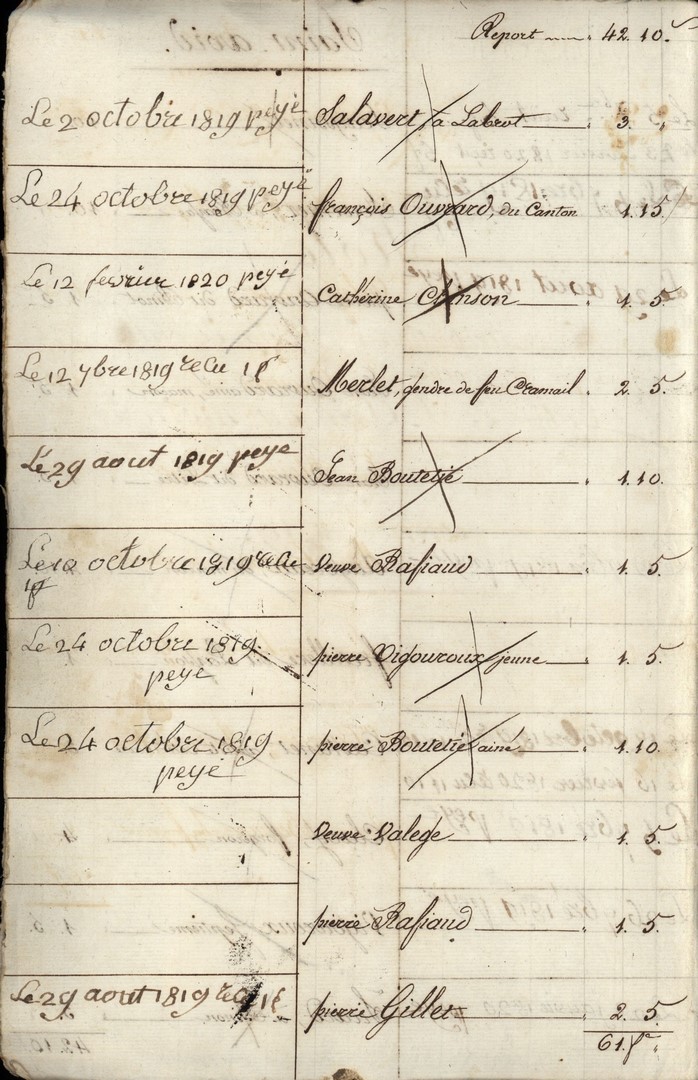 Report 42. 10.
Le 2 octobre 1819 peyé Salavert a Labrot 3. "
Le 24 octobre 1819 peyé françois Ouvrard, du Canton 1. 15
Le 12 fevrier 1820 peyé Cathérine 1. 5.
Le 12 7bre 1819 recu 1f Merlet, gendre de feu Cramail 2. 5.
Le 29 aout 1819 peye Jean Boutetié 1. 10.
Le 10 octobre 1819 recu Veuve Rafiaud 1. 5.
1f
Le 24 octobre 1819. pierre Vigouroux jeune 1. 5.
peyé
Le 24 octobre 1819 pierre Boutetié ainé 1. 10.
peyé
Veuve Valege 1. 5.
pierre Rafiaud 1. 5.
Le 29 aout 1819 recu 1f pierre Gillet 2. 5.
61. f "